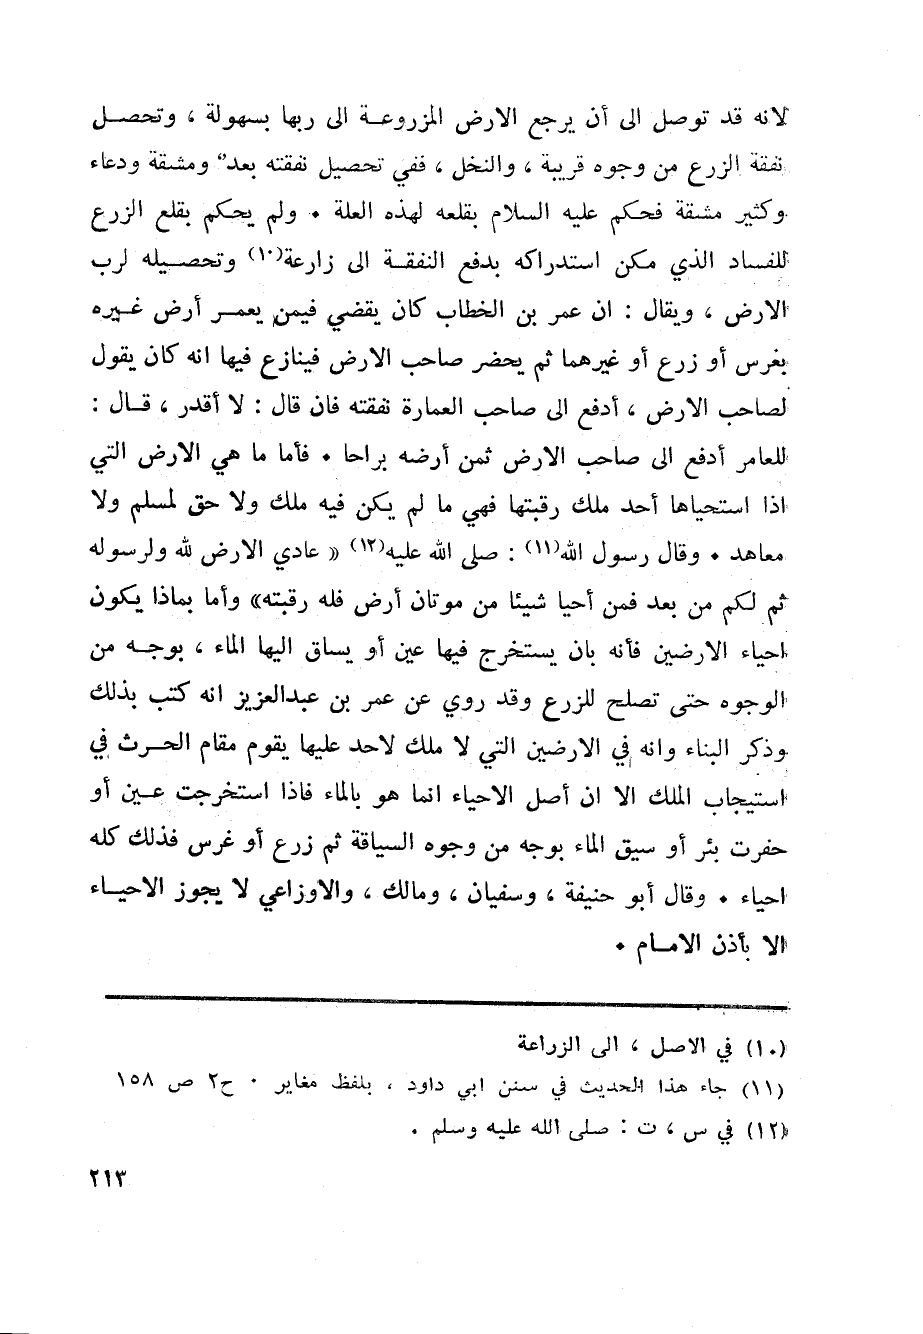 لانه قد توصل الى أن يرجع الارض المزروعـة الى ربها بسهولة ، وتحصـل
نفقة الزرع من وجوه قريبة ، والنخل ، ففي تحصيل نفقته بعد" ومشقة ودعاء
وكثير مشقة فحكم عليه السلام بقلعه لهذه العلة ٠ ولم يحكم بقلع الزرع
للفساد الذي مكن استدراكه بدفع النفقـة الى زارعة(١٠) وتحصـيله لرب
الارض ، ويقال : ان عمر بن الخطاب كان يقضي فيمن يعمـر أرض غـيره
بغرس أو زرع أو غيرهما ثم يحضر صاحب الارض فينازع فيها انه كان يقول
لصاحب الارض ، أدفع الى صاحب العمارة نفقته فان قال : لا أقدر ، قـال :
للعامر أدفع الى صاحب الارض ثمن أرضه براحا ٠ فأما ما هي الارض التي
اذا استحياها أحد ملك رقبتها فهي ما لم يكن فيه ملك ولا حق لمسلم ولا
معاهد ٠ وقال رسول الله(١١) : صلى الله عليه(١٢) « عادي الارض لله ولرسوله
ثم لكم من بعد فمن أحيا شيئا من موتان أرض فله رقبته» وأما بماذا يكون
احياء الارضين فأنه بان يستخرج فيها عين أو يساق اليها الماء ، بوجـه من
الوجوه حتى تصلح للزرع وقد روي عن عمر بن عبدالعزيز انه كتب بذلك
وذكر البناء وانه في الارضين التي لا ملك لاحد عليها يقوم مقام الحـرث في
استيجاب الملك الا ان أصل الاحياء انما هو بالماء فاذا استخرجت عـين أو
حفرت بئر أو سيق الماء بوجه من وجوه السياقة ثم زرع أو غرس فذلك كله
احياء ٠ وقال أبو حنيفة ، وسفيان ، ومالك ، والاوزاعي لا يجوز الاحيـاء
الا بأذن الامـام ٠
(١٠) في الاصل ، الى الزراعة
(١١) جاء هذا الحديث في سنن ابي داود ، بلفظ مغاير ٠ ح٢ ص ١٥٨
(١٢) في س ، ت : صلى الله عليه وسلم .
٢١٣